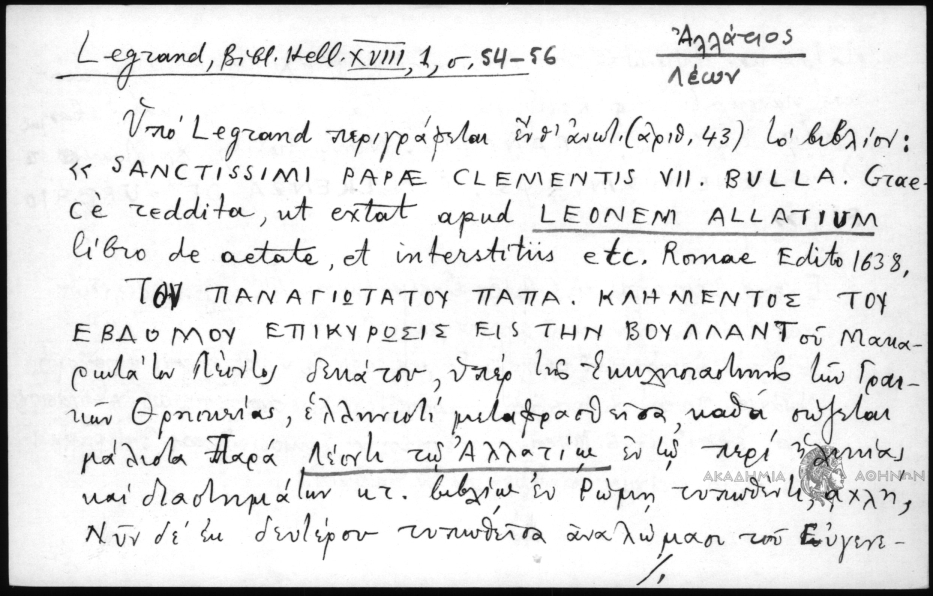 Legrand, Bibl. Hell. XVIII, 1, σ. 54-56
Ἀλλάτιος
Λέων
Ὑπό Legrand περιγράφεται ἔνθ' ἀνωτ. (ἀριθ. 43) τό βιβλίον:
« SANCTISSIMI PAPÆ CLEMENTIS VII. BULLA. Grae-
ce reddita, ut extat apud LEONEM ALLATIUM
libro de aetate, et interstitiis etc. Romae Edito 1638,
ΤΟΥ ΠΑΝΑΓΙΩΤΑΤΟΥ ΠΑΠΑ. ΚΛΗΜΕΝΤΟΣ ΤΟΥ
ΕΒΔΟΜΟΥ ΕΠΙΚΥΡΩΣΙΣ ΕΙS ΤΗΝ ΒΟΥΛΛΑΝ Τοῦ Μακα-
ριωτάτου Λέοντος δεκάτου, ὑπέρ τῆς Ἐκκλησιαστικῆς τῶν Γραι-
κων Θρησκείας, ἑλληνιστί μεταφρασθεῖσα, καθά σώζεται
μάλιστα Παρά Λέοντι τῷ Ἀλλατίῳ ἐν τῷ περί ἡλικίας
καί διαστημάτων κτ. βιβλίῳ ἐν Ρώμῃ τυπωθέντι, αχλη,
Νῦν δέ ἐκ δευτέρου τυπωθεῖσα ἀναλώμασι τοῦ Εὐγενε-
./.
ΑΚΑΔΗΜΙΑ ΑΘΗΝΩΝ